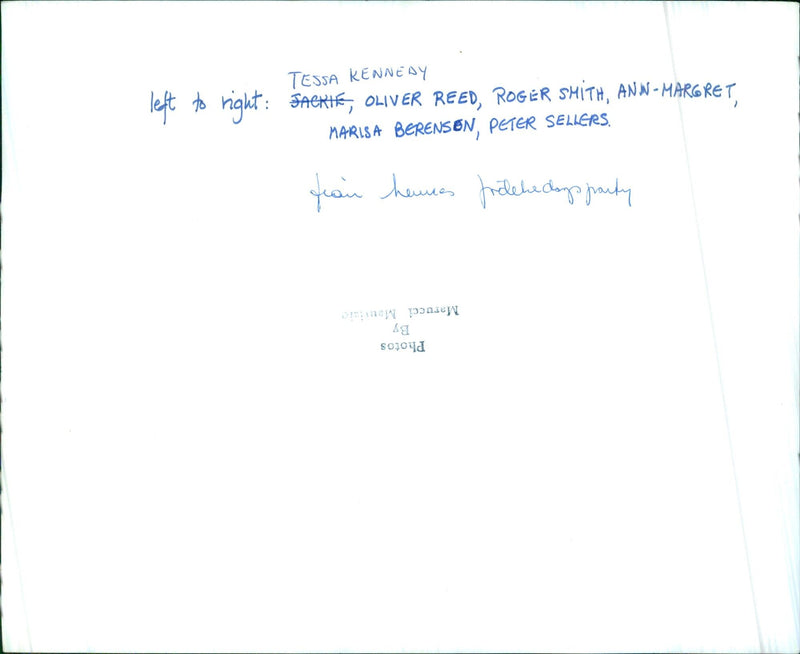 TESSA KENNEDY
left to right: JACKIE, OLIVER REED, ROGER SMITH, ANN-MARGRET,
MARISA BERENSON, PETER SELLERS.
från hennes födelsedagsparty
Photos
By
Marucci Maurizio